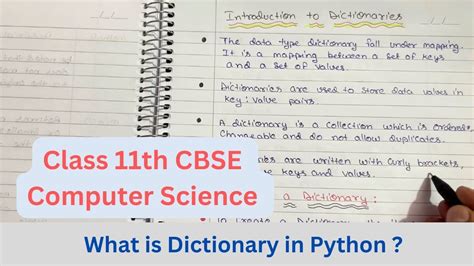 Introduction to Dictionaries
The data type dictionary fall under mapping.
It is a mapping between a set of keys
and a set of values.
Dictionaries are used to store data values in
key : value pairs.
A dictionary is a collection which is ordered
Changeable and do not allow duplicates.
ies are written with curly brackets,
keys and values.
a Dictionary :
Class 11th CBSE
Computer Science
What is Dictionary in Python ?